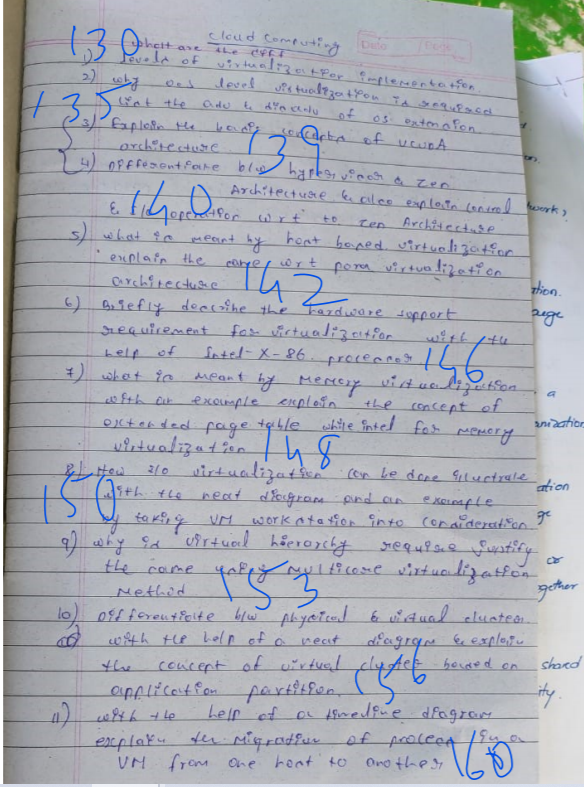 Cloud Computing
Date Page
130
1) What are the diff
levels of virtualization implementation.
2) why os level virtualization is required
135
list the adv & disadv of os extension
3) Explain the basic concepts of
architecture
139
4) Differentiate b/w hypervisor & Xen
Architecture & also explain control
140
& I/O operation w r t to Xen Architecture
5) what is meant by host based virtualization
explain the same w r t para virtualization
architecture
142
6) Briefly describe the hardware support
requirement for virtualization with the
help of Intel-X-86 processor
146
7) what is meant by Memory virtualization
with an example explain the concept of
extended page table while intel for memory
virtualization
148
8) How I/O virtualization can be done illustrate
150
with the neat diagram and an example
by taking VM workstation into consideration
9) why is virtual hierarchy require justify
the same using multicore virtualization
Method
153
10) Differentiate b/w physical & virtual cluster
with the help of a neat diagram & explain
the concept of virtual cluster based on
application partition.
156
11) with the help of a timeline diagram
explain the Migration of process in a
VM from one host to another
160
work,
on.
tion.
page
a
anization
ation
ge
or
gether
shared
ity.